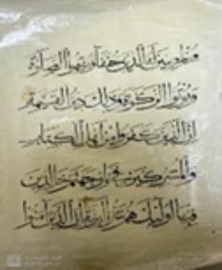 الدين حنفاء ويقيموا الصلوة
ويؤتوا الزكوة وذلك دين القيمة
ان الذين كفروا من اهل الكتاب
والمشركين في نار جهنم خالدين
فيها اولئك هم شر البرية ان الذين امنوا